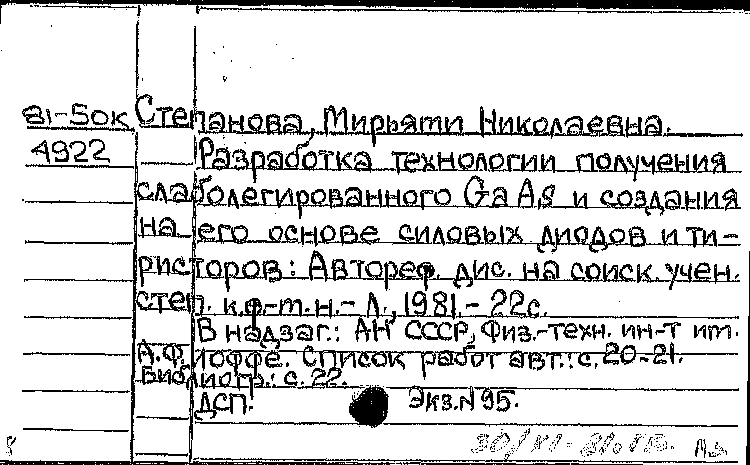 81-50к Степанова, Мирьяти Николаевна.
4922 Разработка технологии получения
слаболегированного GaAs и создания
на его основе силовых диодов и ти-
ристоров: Автореф. дис. на соиск. учен.
степ. к.ф-т.н. - Л., 1981. - 22с.
В надзаг.: АН СССР, Физ.-техн. ин-т им.
А.Ф. Иоффе. Список работ авт.: с. 20-21.
Библиогр.: с. 22.
ДСП. Экз. N 95.